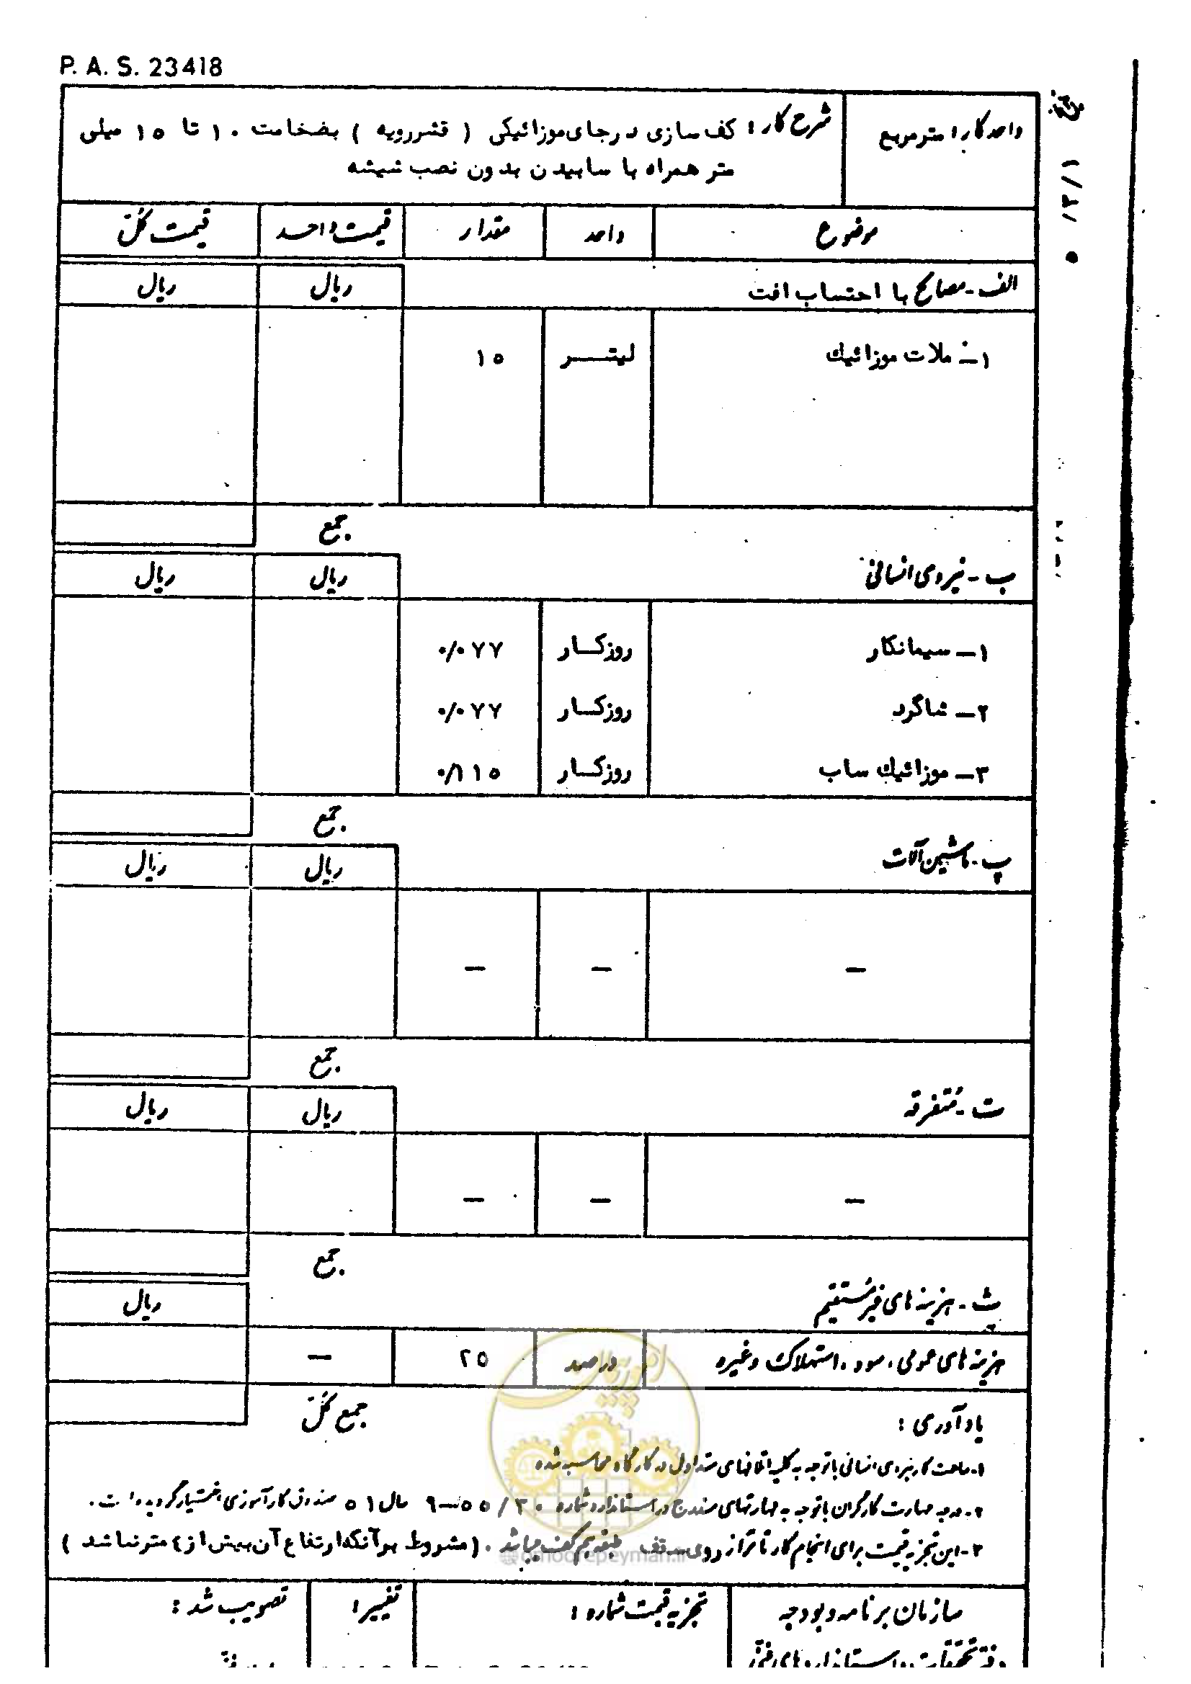 P. A. S. 23418
شرح کار : کف سازی درجای موزائیکی ( قشررویه ) بضخامت ۱۰ تا ۱۵ میلی
متر همراه با سابیدن بدون نصب شیشه
واحد کار : مترمربع
موضوع واحد مقدار قیمت واحد قیمت کل
الف - مصالح با احتساب افت ریال ریال
۱ – ملات موزائیک لیتر ۱۵
جمع
ب - نیروی انسانی ریال ریال
۱ – سیمانکار روزکار ۰/۰۷۷
۲ – شاگرد روزکار ۰/۰۷۷
۳ – موزائیک ساب روزکار ۰/۱۱۵
جمع
پ - ماشین آلات ریال ریال
– – –
جمع
ت - متفرقه ریال ریال
– – –
جمع
ث - هزینه های غیرمستقیم ریال
هزینه های عمومی ، سود ، استهلاک وغیره درصد ۲۵ –
جمع کل
یادآوری :
۱- ساعت کار نیروی انسانی باتوجه به کلیه اتلافهای متداول در کارگاه محاسبه شده
۲- درجه مهارت کارگران باتوجه به مهارتهای مندرج در استاندارد شماره ۳۰ / ۵۵–۹ سال ۵۱ صندوق کارآموزی اختیار گردیده است .
۳- این تجزیه قیمت برای انجام کار تا تراز روی سقف طبقه هم کف میباشد . ( مشروط بر آنکه ارتفاع آن بیش از ٤ متر نباشد )
سازمان برنامه و بودجه
تجزیه قیمت شماره :
تغییر :
تصویب شد :
دفتر تحقیقات و استانداردهای فنی
امور پیمان
@omoorepeyman.ir